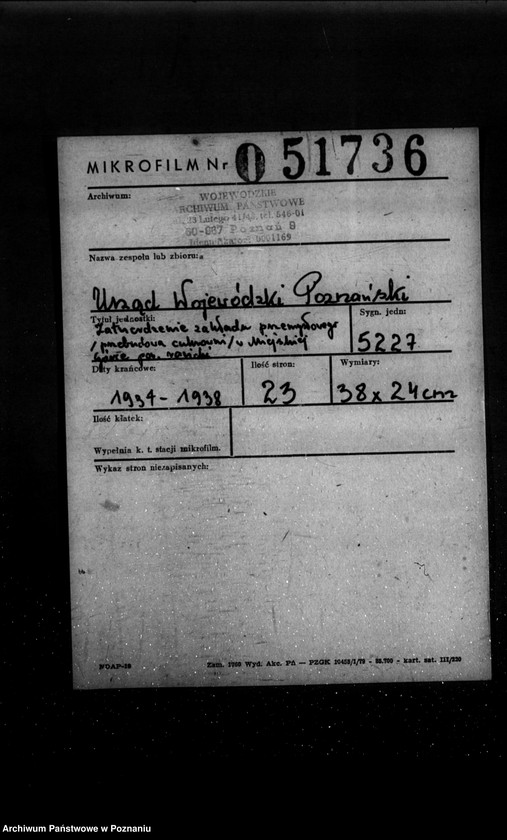 MIKROFILM Nr 0 51736
Archiwum:
WOJEWÓDZKIE
ARCHIWUM PAŃSTWOWE
23 Lutego 41/43, tel. 546-01
60-967 Poznań 9
Identyfikator 0001169
Nazwa zespołu lub zbioru:
Urząd Wojewódzki Poznański
Tytuł jednostki:
Sygn. jedn:
Zatwierdzenie zakładu przemysłowego
/przebudowa cukrowni/ w Miejskiej
Górce pow. rawicki
5227
Daty krańcowe:
Ilość stron:
Wymiary:
1934-1938
23
38 x 24 cm
Ilość klatek:
Wypełnia k. t. stacji mikrofilm.
Wykaz stron niezapisanych:
NDAP-38
Zam. Wyd. Akc. Pń — PZGK - kart. sat. III/220
Archiwum Państwowe w Poznaniu